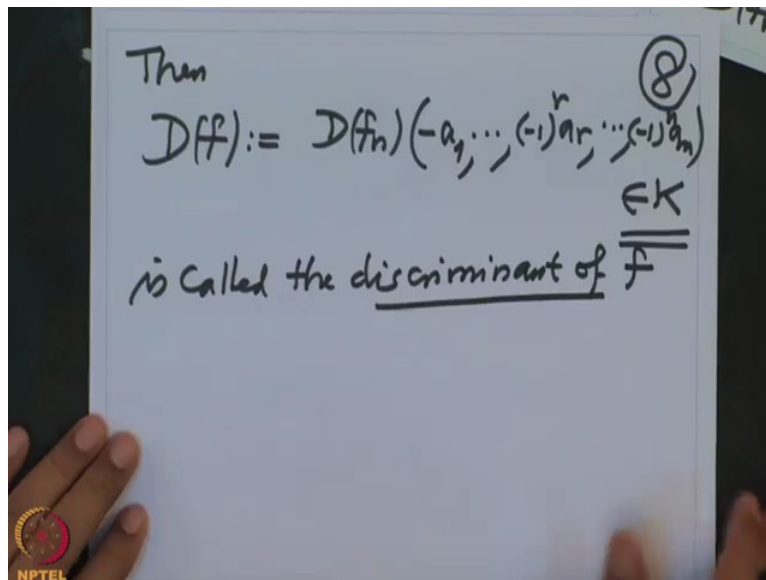 Then
⑧
D(f) := D(fn)(-a₁, ..., (-1)ʳ aᵣ, ..., (-1)ⁿ aₙ)
∈ K
is called the discriminant of f
NPTEL